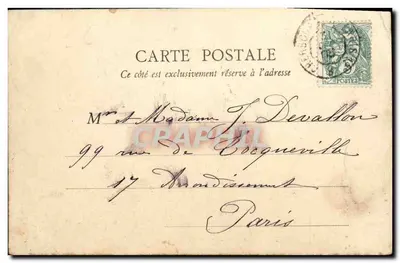 CARTE POSTALE
Ce côté est exclusivement réservé à l'adresse
Mr et Madame J. Devallon
99 rue de Tocqueville
17 Arrondissement
Paris
CPAPHIL